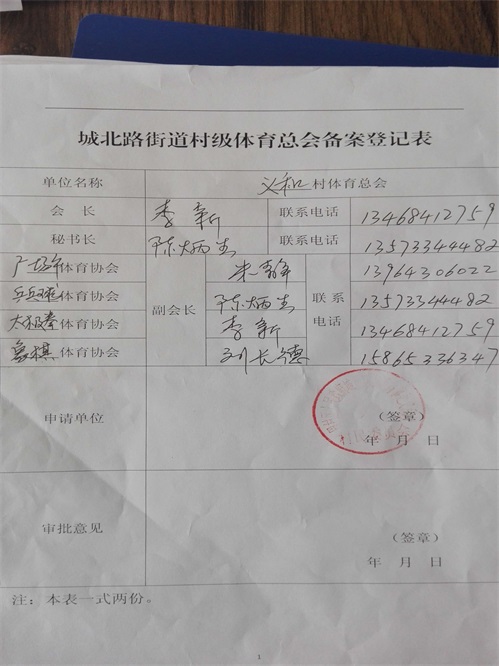 城北路街道村级体育总会备案登记表
单位名称 义和村体育总会
会长 李新 联系电话 13468412759
秘书长 陈炳吉 联系电话 13573344482
副会长 联系电话
广场舞体育协会 朱静 13964306022
乒乓球体育协会 陈炳吉 13573344482
太极拳体育协会 李新 13468412759
象棋体育协会 刘长德 15865336347
申请单位 (签章)
年 月 日
审批意见 (签章)
年 月 日
注：本表一式两份。
1